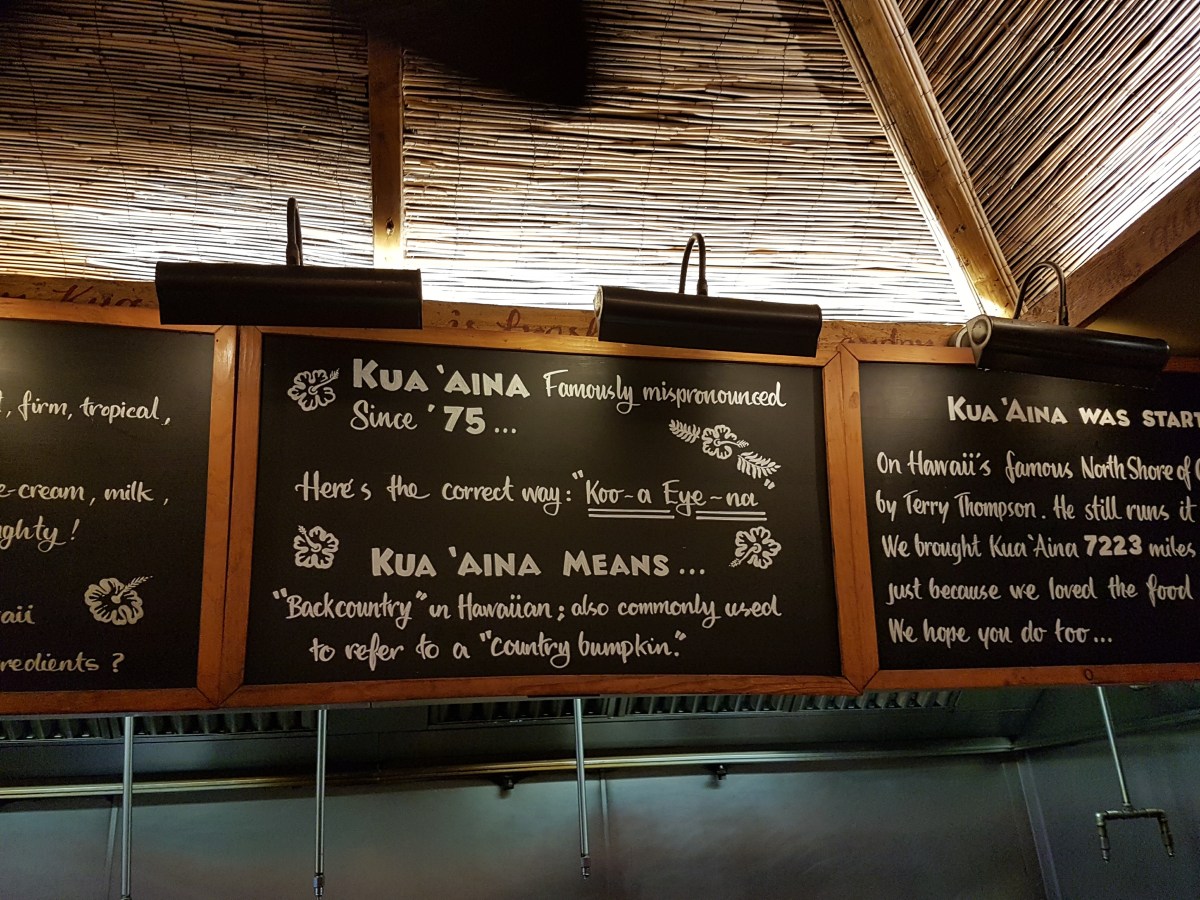 , firm, tropical,
e-cream, milk,
ghty!
aii
redients?
KUA 'AINA Famously mispronounced
Since '75...
Here's the correct way: "Koo-a Eye-na"
KUA 'AINA MEANS...
"Backcountry" in Hawaiian; also commonly used
to refer to a "country bumpkin."
KUA 'AINA WAS START
On Hawaii's famous North Shore of
by Terry Thompson. He still runs it
We brought Kua 'Aina 7223 miles
just because we loved the food
We hope you do too...